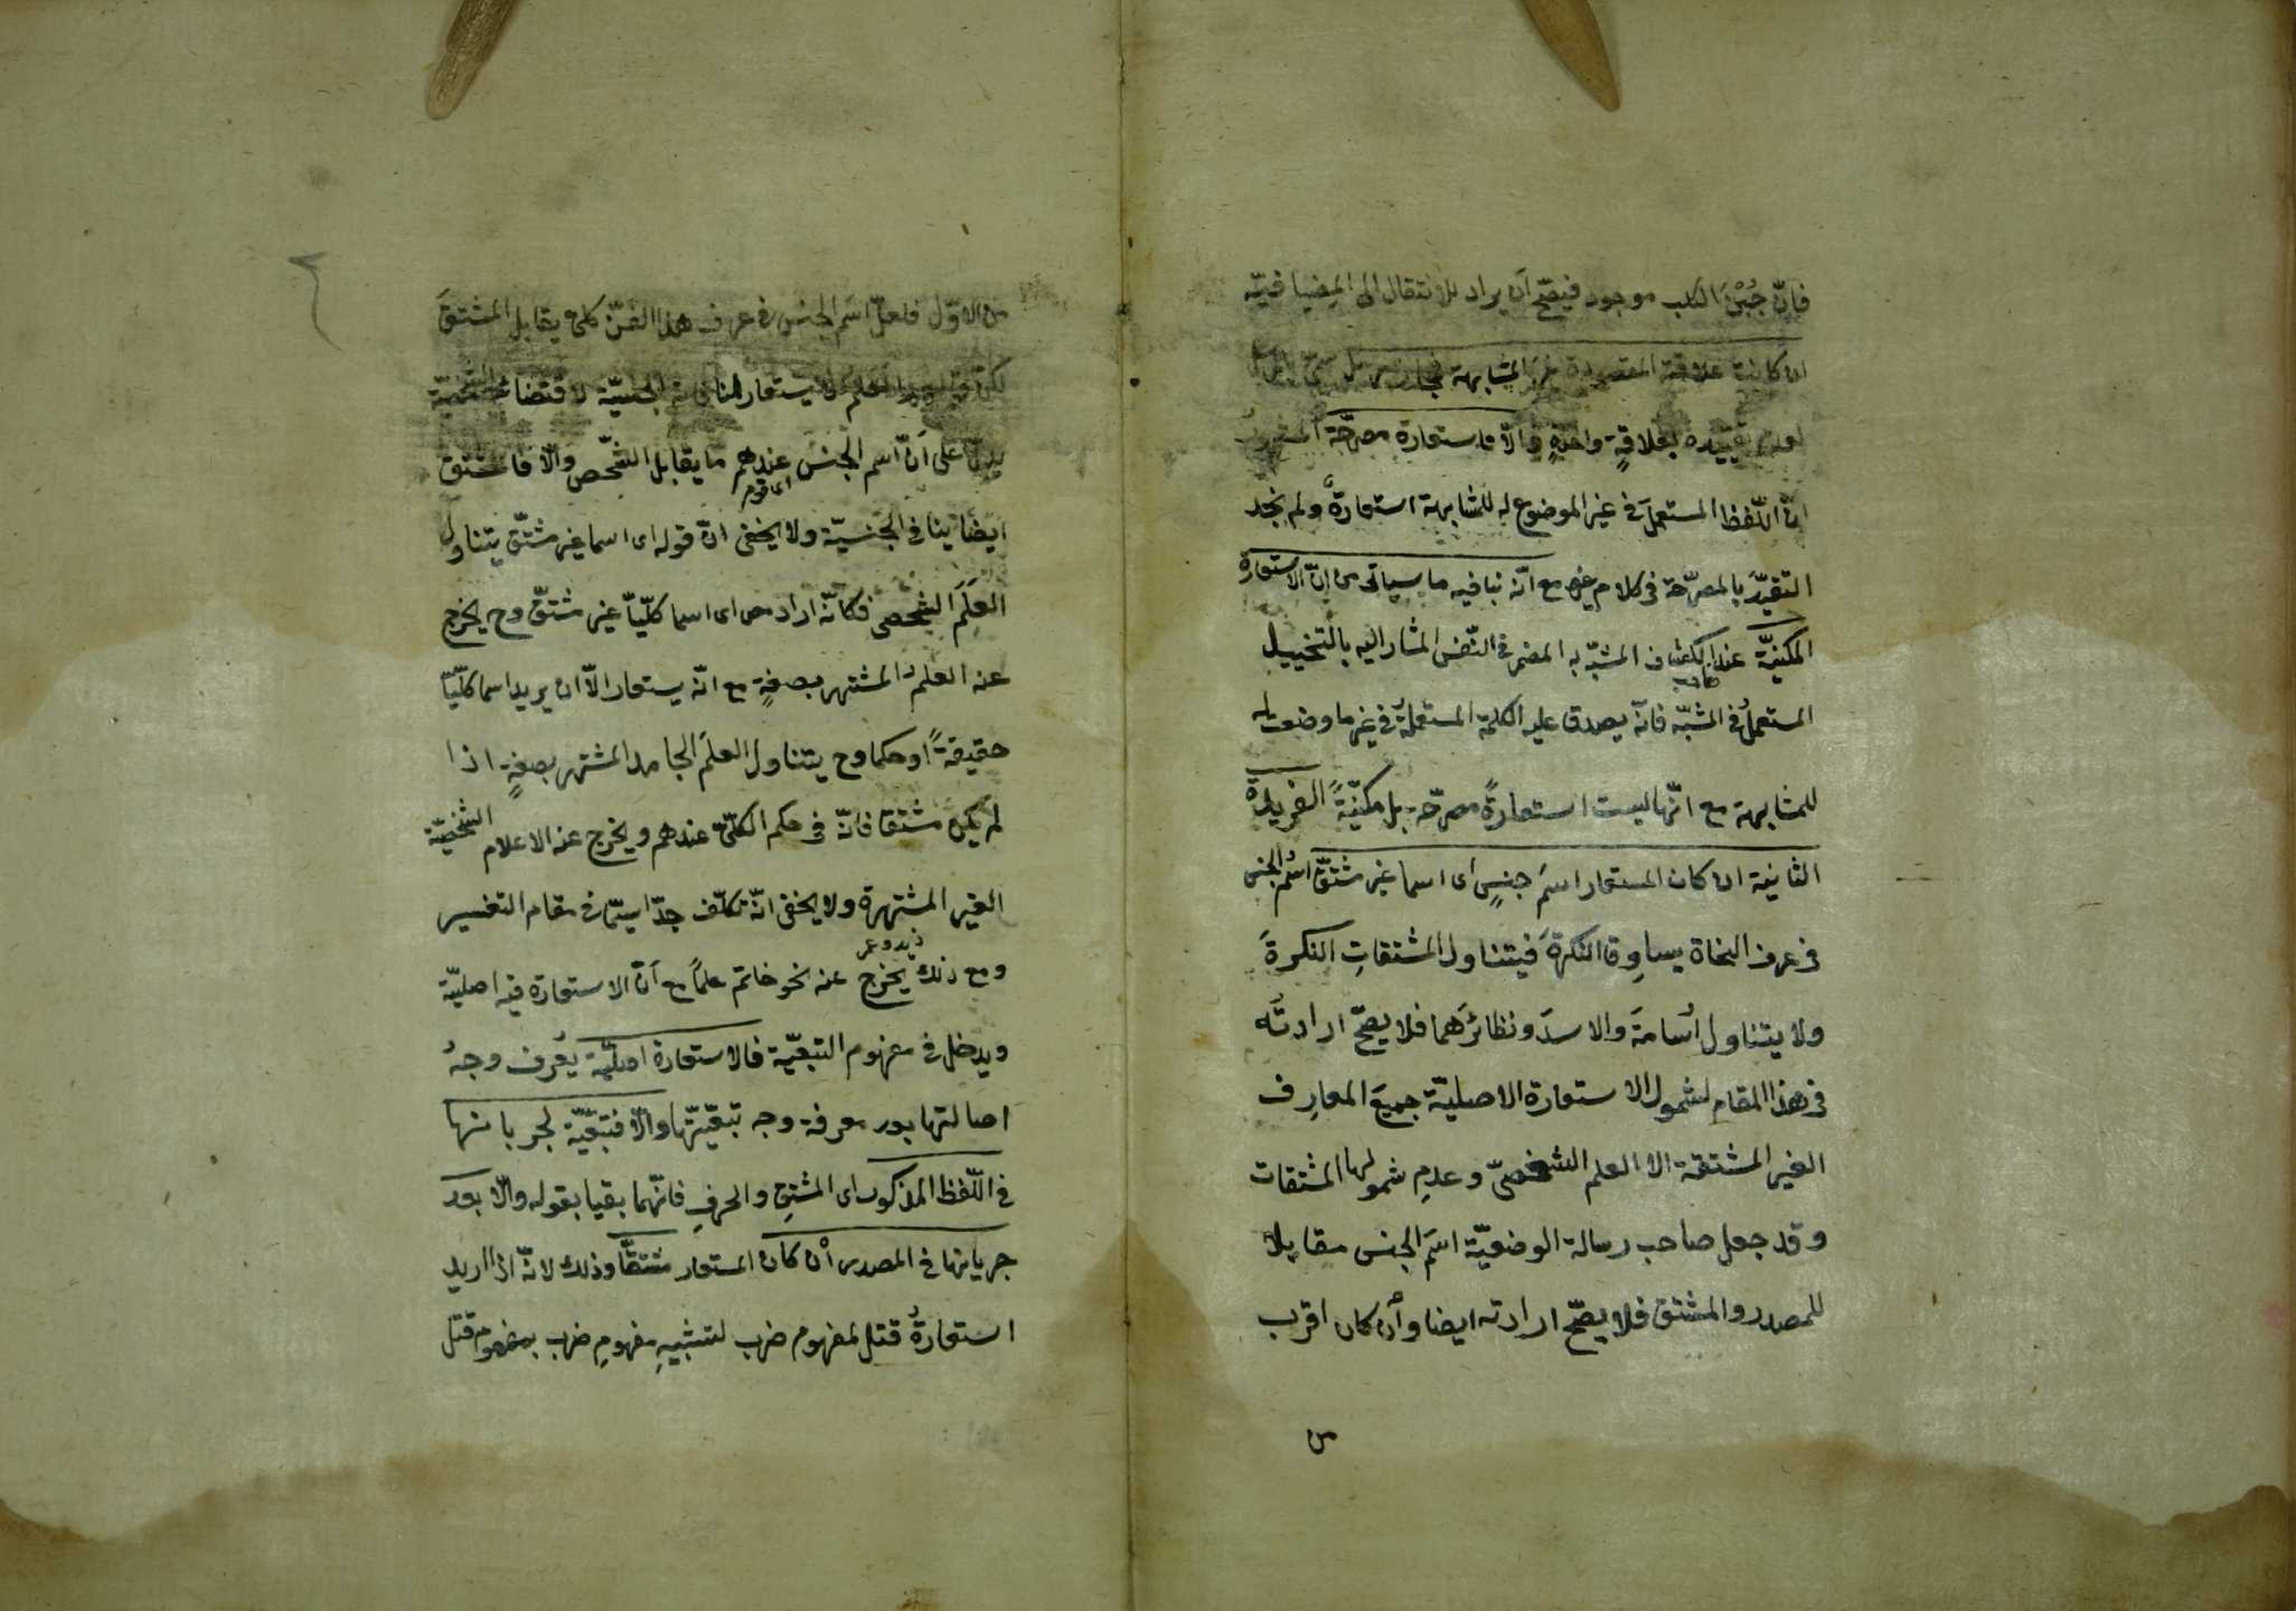 فانّ جُبْنَ الكلب موجود فيصّح ان يراد للانتقال الى المِضيافيّة
ان كانت علاقة المقصودة غيرَ المشابهة فمجاز مرسل
لعدم تقييده بعلاقةٍ واحدةٍ والّا فاستعارة مصرّحة المشهورُ
انّ اللّفظ المستعملَ فى غير الموضوع له للمشابهة استعارةٌ ولم نجد
التقيّدَ بالمصرّحة فى كلام غيره مع انّه ينافيه ما سيأتى من انّ الاستعارة
المكنيّة عند الكشاف المشبّه به المضمر فى النّفس المشار اليه بالتخييل
صاحب
المستعملُ فى المشبّه فانّه يصدق عليه الكلمة المستعملةُ فى غير ما وضعت له
للمشابهة مع انّها ليست استعارةً مصرّحة بل مكنيّةً الفريدة
الثانية ان كان المستعار اسمَ جنسٍ اى اسما غير مشتقّ اسمُ الجنس
فى عرف النحاة يساوِق النكرةَ فيتناول المشتقاتِ النكرةَ
ولا يتناول أُسامةَ والاسدَ ونظائرَهما فلا يصحّ ارادتُه
فى هذا المقام لشمول الاستعارة الاصليّة جميعَ المعارِف
الغير المشتقة الا العلم الشخصىّ وعدمِ شمولها المشتقات
وقد جعل صاحب رسالة الوضعيّة اسمَ الجنس مقابلا
للمصدر والمشتق فلا يصحّ ارادته ايضا وأن كان اقرب
من
من الاوّل فلعلّ اسَم الجنس فى عرف هذا الفنّ كلىّ يقابل المشتقَ
لكن العلم لا يستعار الجنسيّة لاقتضائه
يدلّ على اَنّ اسم الجنس عندهم ما يقابل الشّخص والّا فالمشتق
اى قوم
ايضا ينافى الجنسيّة ولا يخفى انّ قوله اى اسما غير مشتّق يتناول
العلَمَ الشخصى فكانّه اراد من اى اسما كلّيّا غير مشتقّ وح يخرج
عنه العلمُ المشتهر بصفةٍ مع انّه يستعار الّا ان يريد اسما كلّيّا
حقيقةً او حكما وح يتناول العلَم الجامد المشتهر بصفةٍ اذا
لم يكن مشتقا فانّه فى حكم الكلّىّ عندهم ويخرج عنه الاعلام الشخصيّة
الغير المشتهرة ولا يخفى انّه تكلّف جدّا سيّما فى مقام التفسير
زيد وعمر
ومع ذلك يخرج عنه نحو خاتم علماً مع اَنّ الاستعارة فيه اصليّة
ويدخل فى مفهوم التبعيّة فالاستعارة اصليّة يُعرف وجهُ
اصالتها بعد معرفة وجه تبعيّتها والّا فتبعيّة لجريانها
فى اللّفظ المذكور اى المشتقِ والحرفِ فانّهما بقيا بقوله والّا بعد
جريانها فى المصدر أن كان المستعار مشتقّا وذلك لانّه اذا اريد
استعارةُ قتل لمفهوم ضرب لتشبيهِ مفهومِ ضرب بمفهوم قتل